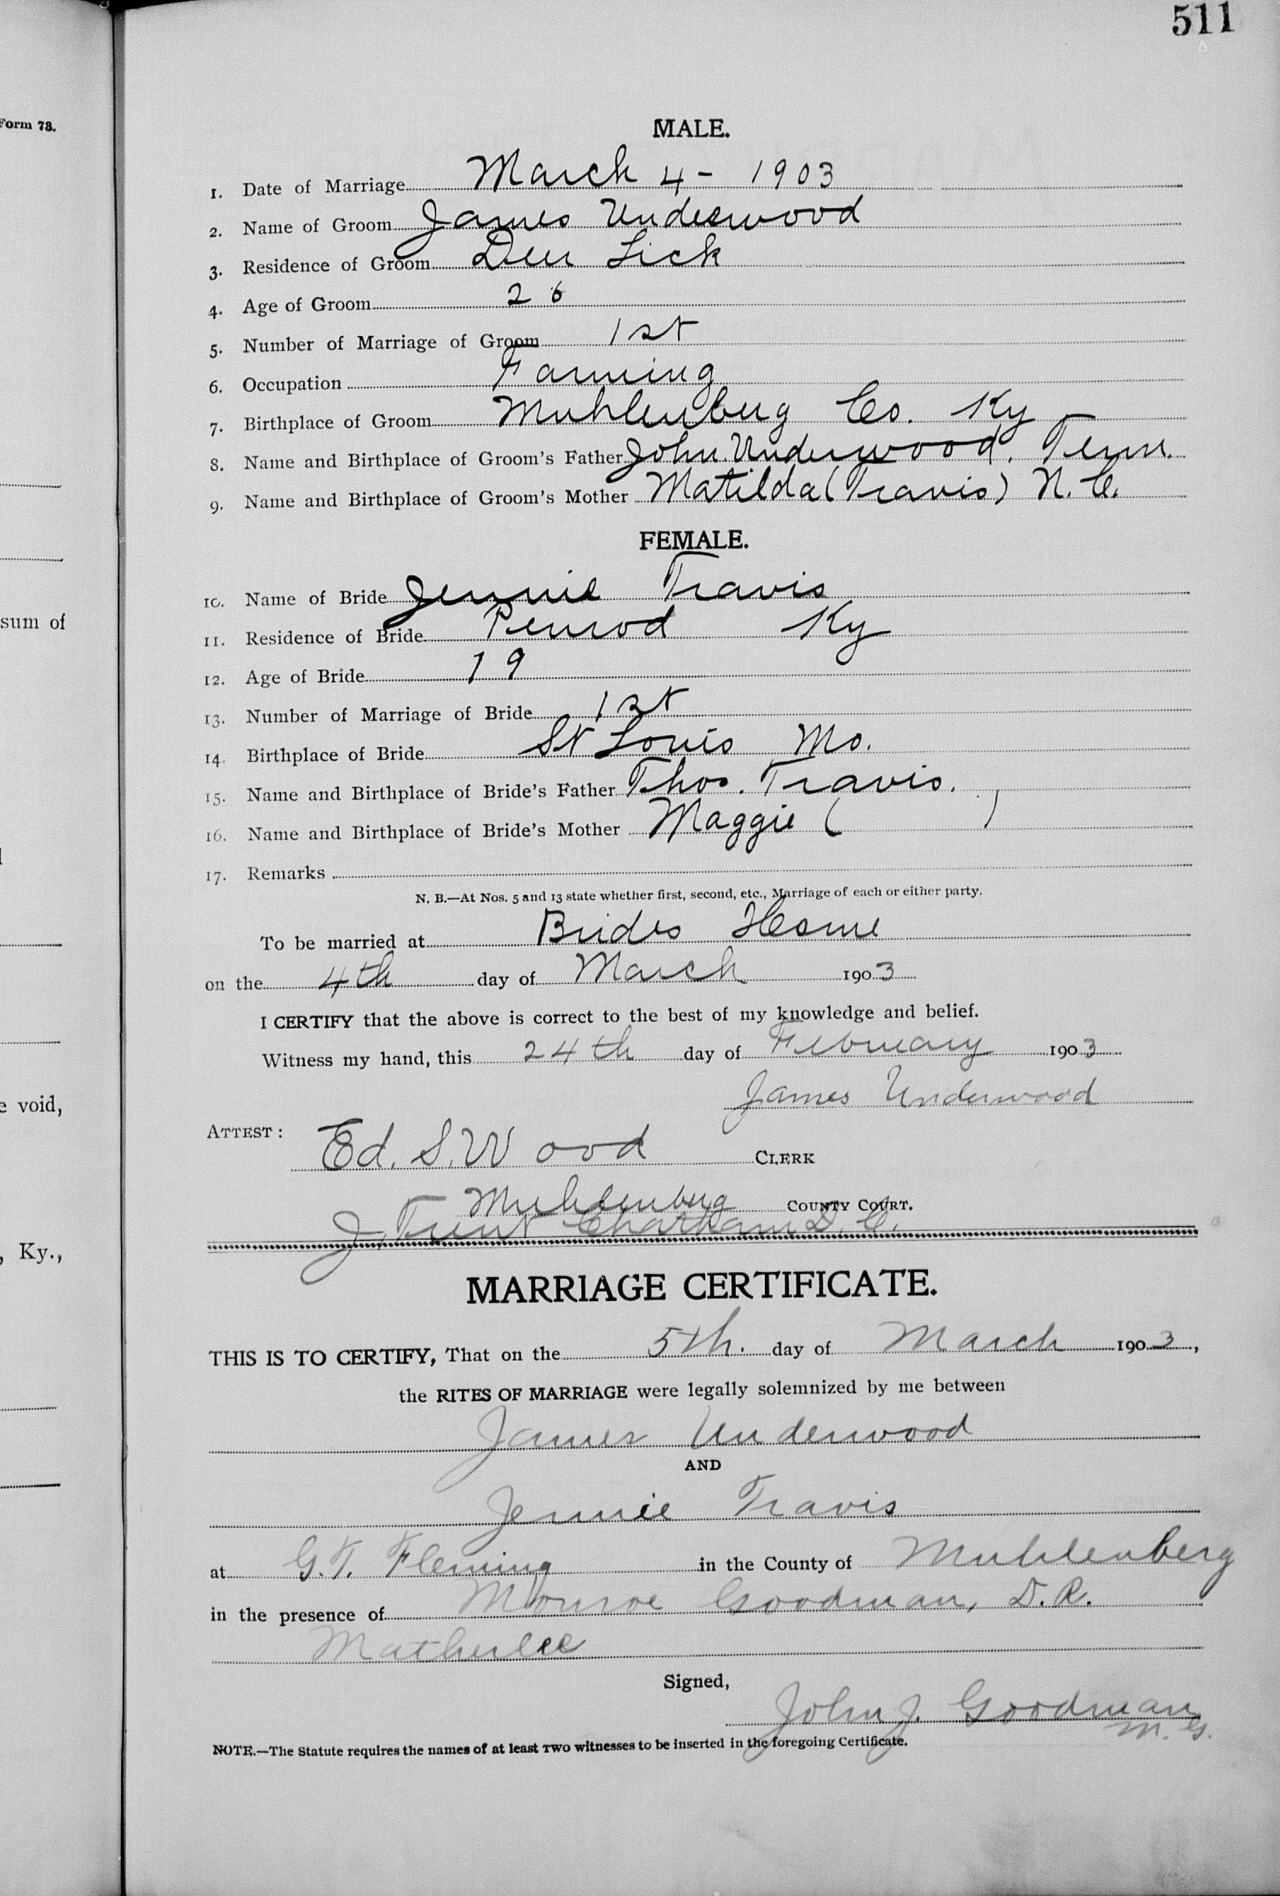 511
Form 78.
MALE.
1. Date of Marriage March 4 - 1903
2. Name of Groom James Underwood
3. Residence of Groom Deer Lick
4. Age of Groom 26
5. Number of Marriage of Groom 1st
6. Occupation Farming
7. Birthplace of Groom Muhlenburg Co. Ky
8. Name and Birthplace of Groom's Father John Underwood. Tenn.
9. Name and Birthplace of Groom's Mother Matilda (Travis) N. C.
FEMALE.
10. Name of Bride Jennie Travis
11. Residence of Bride Penrod Ky
sum of
12. Age of Bride 19
13. Number of Marriage of Bride 1st
14. Birthplace of Bride St Louis Mo.
15. Name and Birthplace of Bride's Father Thos. Travis.
16. Name and Birthplace of Bride's Mother Maggie ( )
17. Remarks
N. B.—At Nos. 5 and 13 state whether first, second, etc., Marriage of each or either party.
To be married at Brides Home
on the 4th day of March 1903
I CERTIFY that the above is correct to the best of my knowledge and belief.
Witness my hand, this 24th day of February 1903
e void,
James Underwood
ATTEST: Ed. S. Wood CLERK
Muhlenburg COUNTY COURT.
J. Trent Chatham D. C.
, Ky.,
MARRIAGE CERTIFICATE.
THIS IS TO CERTIFY, That on the 5th. day of March 1903,
the RITES OF MARRIAGE were legally solemnized by me between
James Underwood
AND
Jennie Travis
at G. T. Fleming in the County of Muhlenberg
in the presence of Monroe Goodman, D. R.
Signed,
John J. Goodman
M. G.
NOTE.—The Statute requires the names of at least TWO witnesses to be inserted in the foregoing Certificate.